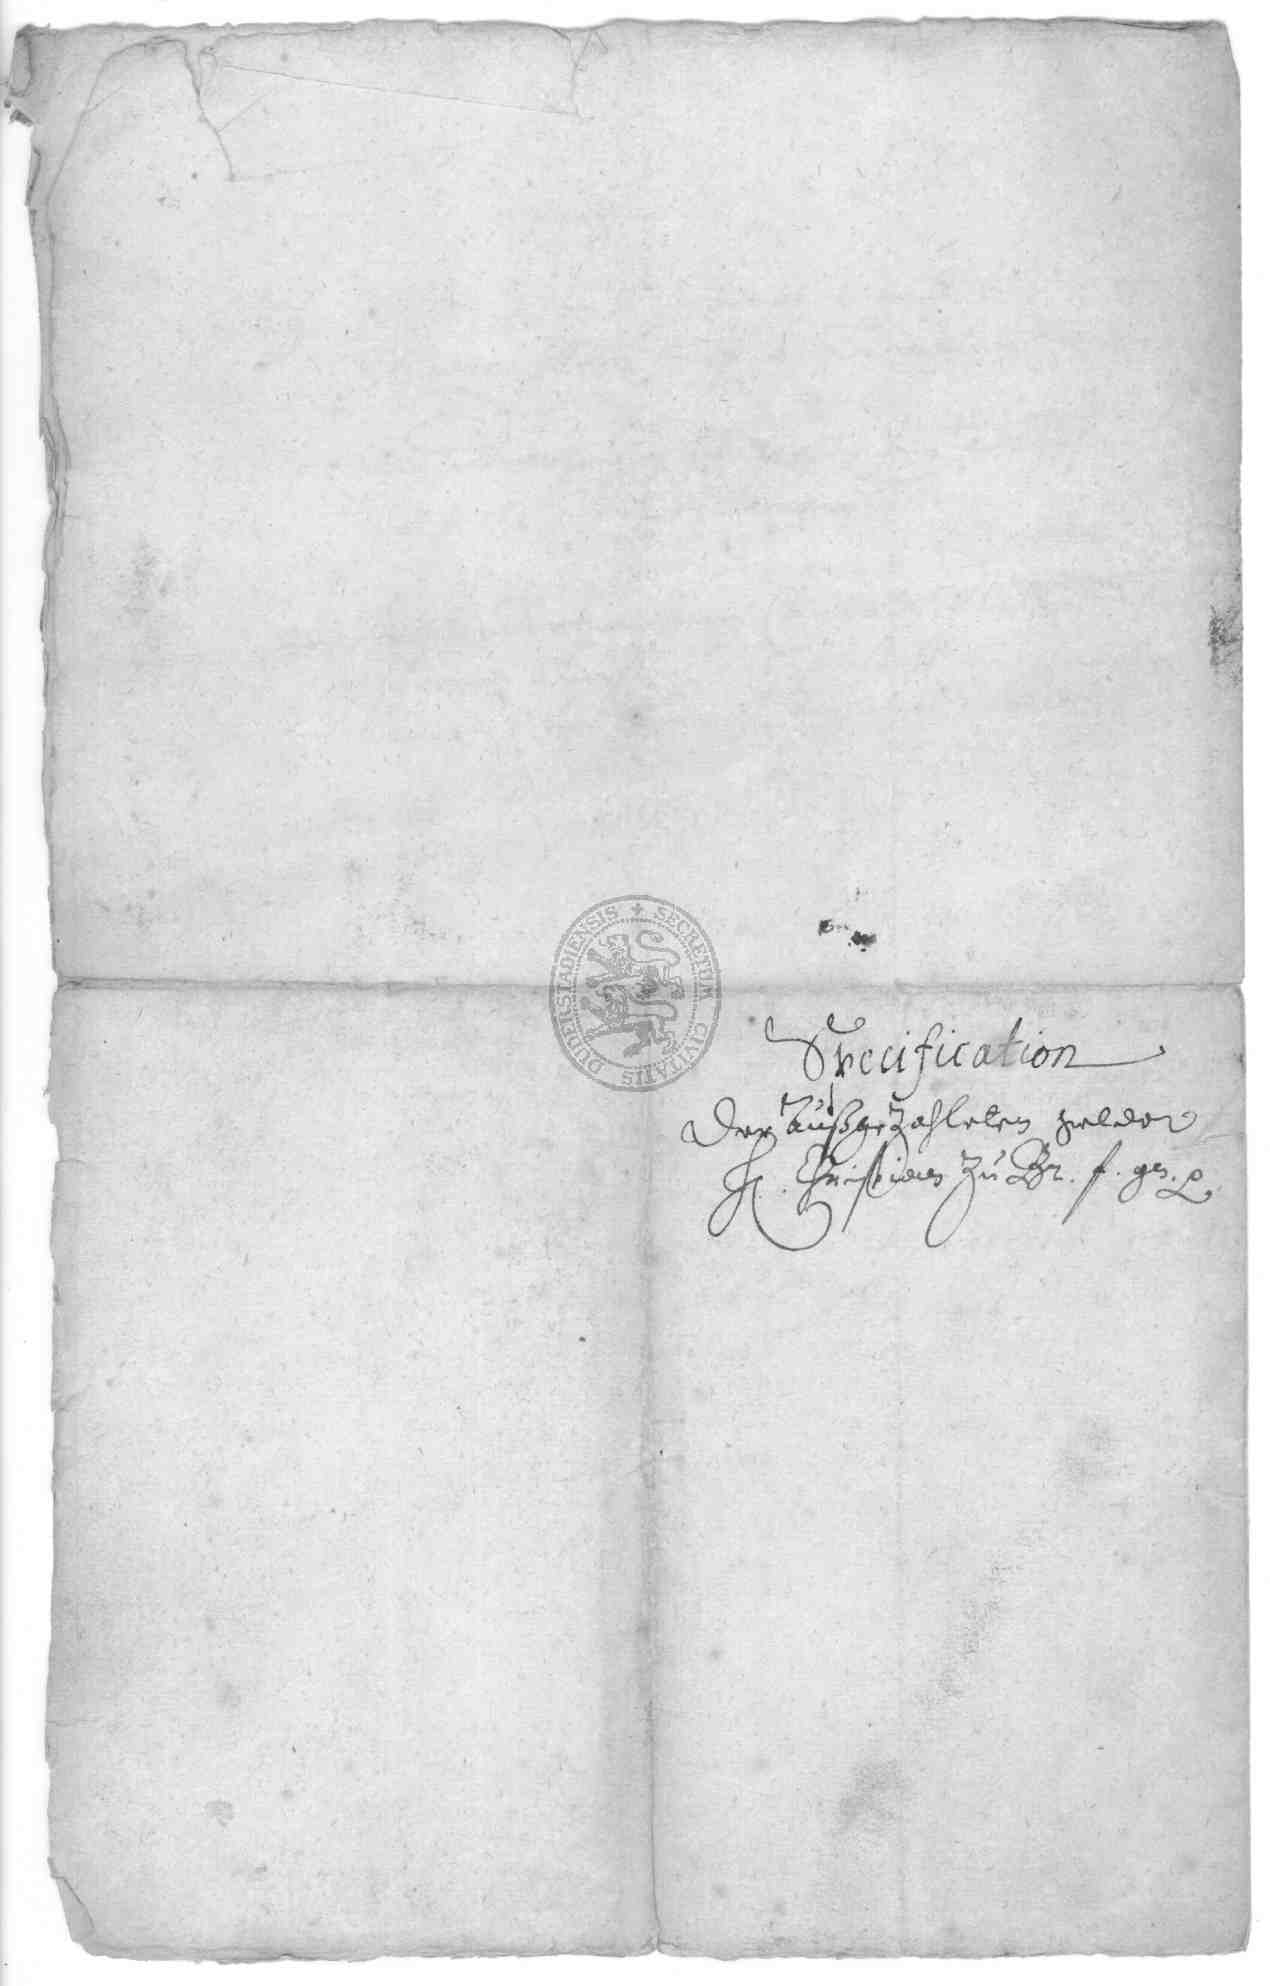 SECRETUM CIVITATIS DUDERSTADIENSIS
Specification
Der außgezahleten gelder
H. Christian zu Br. f. gn.